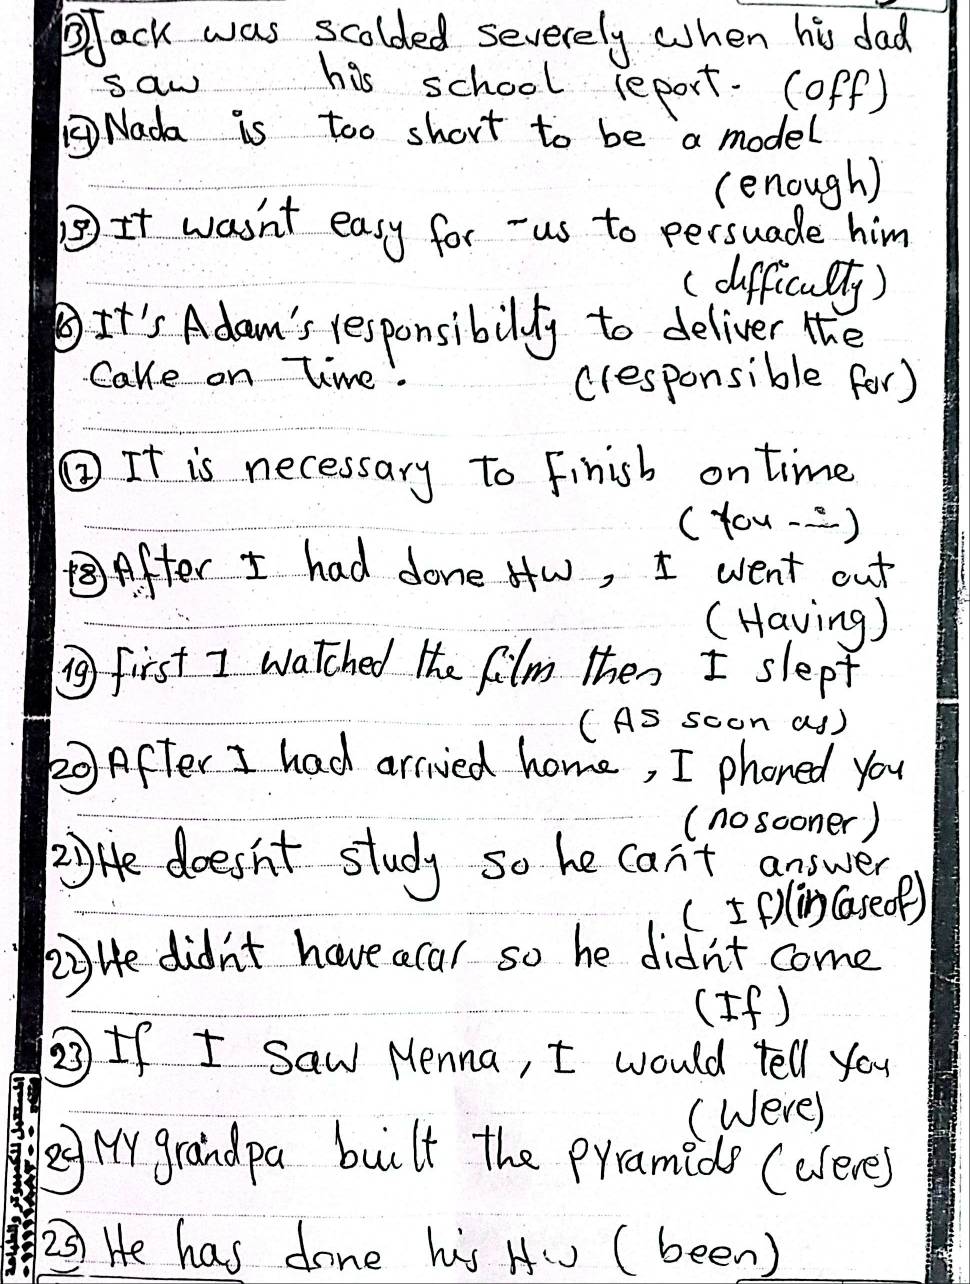 13) Jack was scolded severely when his dad
saw his school report. (off)
14) Nada is too short to be a model
(enough)
15) It wasn't easy for us to persuade him
(difficulty)
16) It's Adam's responsibility to deliver the
cake on time. (responsible for)
17) It is necessary to finish on time
(You ---)
18) After I had done HW, I went out
(Having)
19) first I watched the film then I slept
(AS soon as)
20) After I had arrived home, I phoned you
(no sooner)
21) He doesn't study so he can't answer
(If)(in case of)
22) He didn't have a car so he didn't come
(If)
23) If I saw Menna, I would tell you
(Were)
24) My grandpa built the pyramids (were)
25) He has done his HW (been)